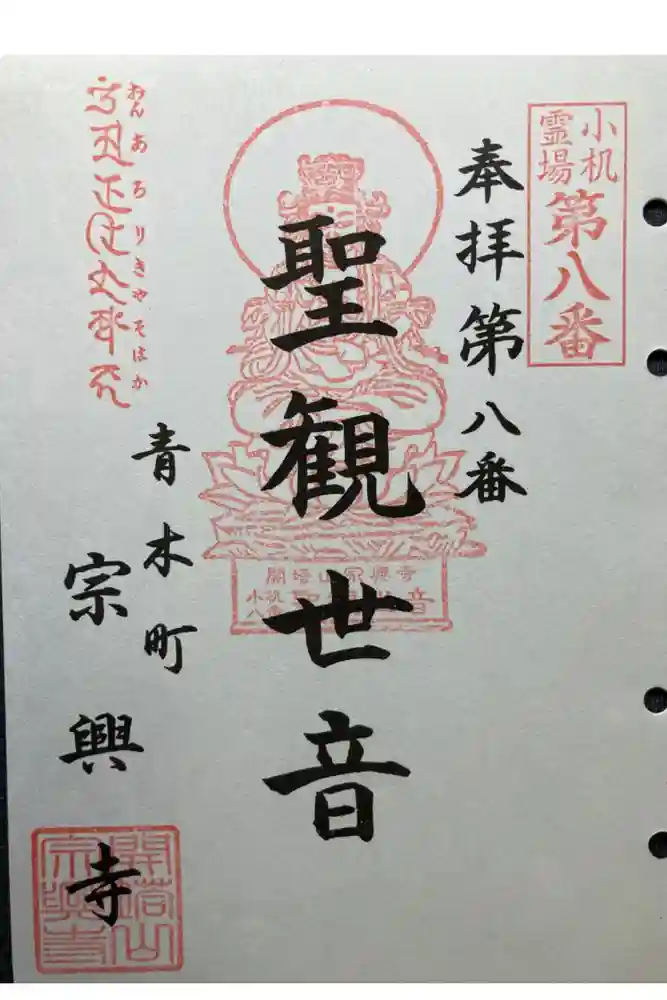 小机
霊場
第八番
奉拝第八番
聖観世音
開塔山宗興寺
小机
八番
音
おんあろりきやそはか
青木町
宗興寺
開塔山
宗興寺